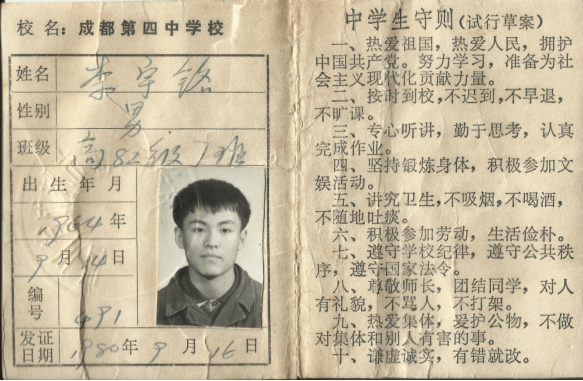 校名：成都第四中学校
姓名 李宇铭
性别 男
班级 高82级1班
出生年月
1964年
9月14日
编号 491
发证日期 1980年9月16日
中学生守则(试行草案)
一、热爱祖国，热爱人民，拥护
中国共产党。努力学习，准备为社
会主义现代化贡献力量。
二、按时到校,不迟到,不早退，
不旷课。
三、专心听讲，勤于思考，认真
完成作业。
四、坚持锻炼身体，积极参加文
娱活动。
五、讲究卫生,不吸烟,不喝酒，
不随地吐痰。
六、积极参加劳动，生活俭朴。
七、遵守学校纪律，遵守公共秩
序，遵守国家法令。
八、尊敬师长，团结同学，对人
有礼貌，不骂人，不打架。
九、热爱集体，爱护公物，不做
对集体和别人有害的事。
十、谦虚诚实，有错就改。